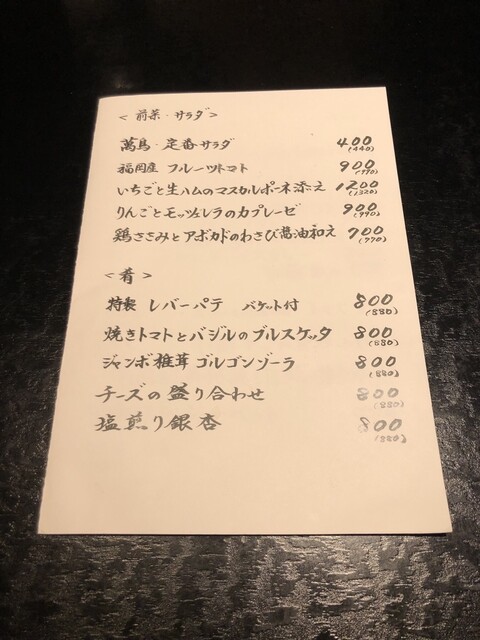 <前菜・サラダ>
萬鳥・定番サラダ 400 (440)
福岡産 フルーツトマト 900 (990)
いちごと生ハムのマスカルポーネ添え 1200 (1320)
りんごとモッツァレラのカプレーゼ 900 (990)
鶏ささみとアボカドのわさび醤油和え 700 (770)
<肴>
特製 レバーパテ バケット付 800 (880)
焼きトマトとバジルのブルスケッタ 800 (880)
ジャンボ椎茸ゴルゴンゾーラ 800 (880)
チーズの盛り合わせ 800 (880)
塩煎り銀杏 800 (880)